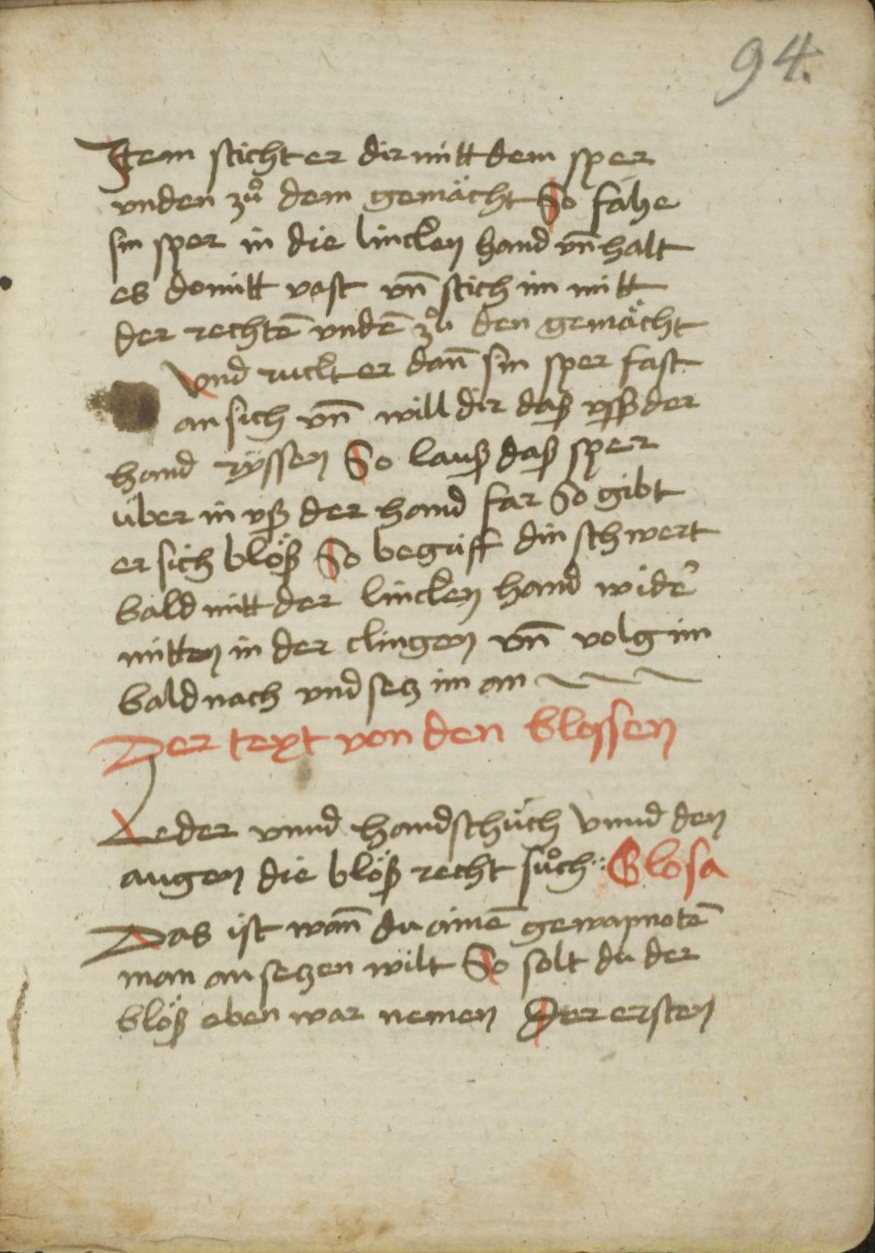 94.
Item sticht er dir mitt dem sper
vnden zů dem gemächt So fahe
sin sper in die lincken hand vn̄ halt
es domitt vast vn̄ stich im mitt
der rechtē vndē zů den gemächt
Vnd ruckt er dan̄ sin sper fast
an sich vn̄ will dir daß vsß der
hand ryssen So lauß daß sper
über in vß der hand far So gibt
er sich blöß So begriff din schwert
bald mitt der lincken hand widē
mitten in der clingen vn̄ volg im
bald nach vnd setz im an
Der text von den blossen
Leder vnnd handschüch Vnnd den
augen die blöß recht sůch Glosa
Das ist wan̄ du ainē gewapnotē
man an setzen wilt So solt du der
blöß eben war nemen Der ersten